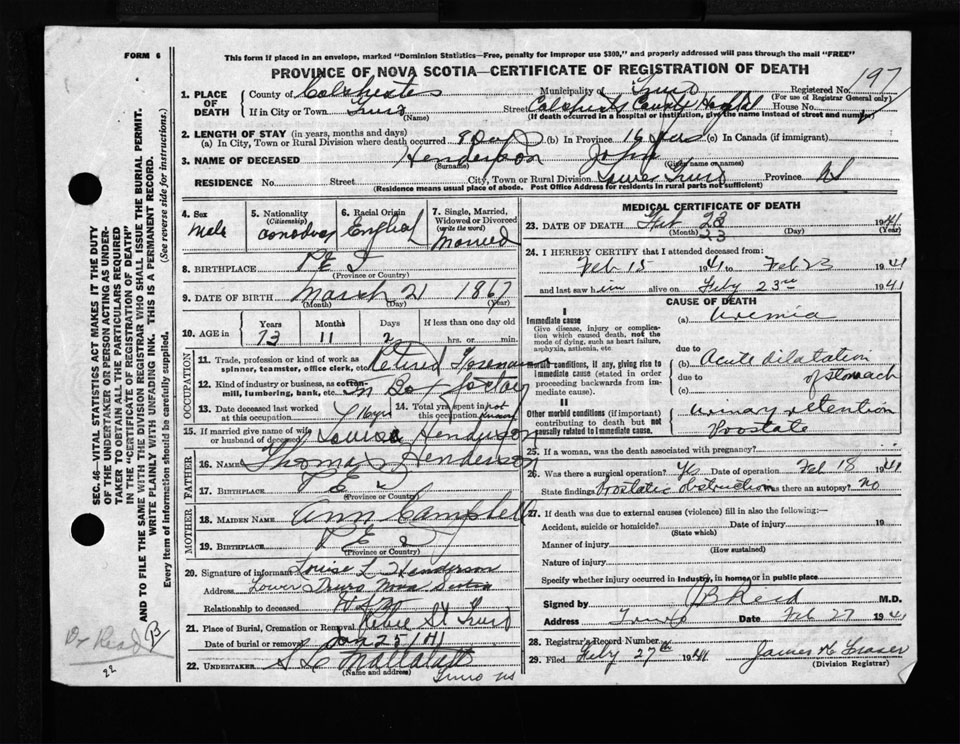 FORM 6
This form if placed in an envelope, marked "Dominion Statistics—Free, penalty for improper use $300," and properly addressed will pass through the mail "FREE"
PROVINCE OF NOVA SCOTIA—CERTIFICATE OF REGISTRATION OF DEATH
197
1. PLACE OF DEATH
County of Colchester Municipality of Truro Registered No.
(For use of Registrar General only)
If in City or Town Truro Street Colchester County Hospital House No.
(Name) (If death occurred in a hospital or institution, give the name instead of street and number)
2. LENGTH OF STAY (in years, months and days)
(a) In City, Town or Rural Division where death occurred 9 Days (b) In Province 16 yrs (c) In Canada (if immigrant)
3. NAME OF DECEASED Henderson John
(Surname) (Given name or names)
RESIDENCE No. Street City, Town or Rural Division Lower Truro Province NS
(Residence means usual place of abode. Post Office Address for residents in rural parts not sufficient)
4. Sex Male
5. Nationality (Citizenship) Canadian
6. Racial Origin English
7. Single, Married, Widowed or Divorced (write the word) Married
8. BIRTHPLACE P E I
(Province or Country)
9. DATE OF BIRTH March 21 1867
(Month) (Day) (Year)
10. AGE in Years Months Days If less than one day old
73 11 2 hrs. or min.
OCCUPATION
11. Trade, profession or kind of work as spinner, teamster, office clerk, etc. Retired Foreman
12. Kind of industry or business, as cotton-mill, lumbering, bank, etc. In Box factory
13. Date deceased last worked at this occupation
14. Total yrs. spent in this occupation not known
15. If married give name of wife or husband of deceased Louise Henderson
FATHER
16. NAME Thomas Henderson
17. BIRTHPLACE P E I
(Province or Country)
MOTHER
18. MAIDEN NAME Ann Campbell
19. BIRTHPLACE P E I
(Province or Country)
20. Signature of informant Louise L Henderson
Address Lower Truro Nova Scotia
Relationship to deceased Wife
21. Place of Burial, Cremation or Removal Robie St Truro
Date of burial or removal 25/41
22. UNDERTAKER
(Name and address) Truro NS
MEDICAL CERTIFICATE OF DEATH
23. DATE OF DEATH Feb 23 1941
(Month) (Day) (Year)
23
24. I HEREBY CERTIFY that I attended deceased from:
Feb 15 1941 to Feb 23 1941
and last saw him alive on Feby 23rd 1941
CAUSE OF DEATH
I
Immediate cause
Give disease, injury or complication which caused death, not the mode of dying, such as heart failure, asphyxia, asthenia, etc.
(a) Uremia
due to
Morbid conditions, if any, giving rise to immediate cause (stated in order proceeding backwards from immediate cause).
(b) Acute dilatation
due to of Stomach
(c)
II
Other morbid conditions (if important) contributing to death but not causally related to immediate cause.
Urinary retention
Prostate
25. If a woman, was the death associated with pregnancy?
26. Was there a surgical operation? Yes Date of operation Feb 18 1941
State findings Prostatic obstruction Was there an autopsy? No
27. If death was due to external causes (violence) fill in also the following:—
Accident, suicide or homicide? Date of injury 19
(State which)
Manner of injury
(How sustained)
Nature of injury
Specify whether injury occurred in industry, in home, or in public place
Signed by J B Reid M.D.
Address Truro Date Feb 27 1941
28. Registrar's Record Number
29. Filed Feby 27th 1941 James K Fraser
(Division Registrar)
SEC. 46—VITAL STATISTICS ACT MAKES IT THE DUTY
OF THE UNDERTAKER OR PERSON ACTING AS UNDER-
TAKER TO OBTAIN ALL THE PARTICULARS REQUIRED
IN THE "CERTIFICATE OF REGISTRATION OF DEATH"
AND TO FILE THE SAME WITH THE DIVISION REGISTRAR WHO SHALL ISSUE THE BURIAL PERMIT.
WRITE PLAINLY WITH UNFADING INK. THIS IS A PERMANENT RECORD.
Every item of information should be carefully supplied. (See reverse side for instructions.)
Dr Reid B
22